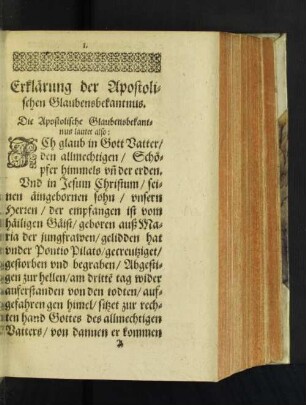 1.
Erklärung der Apostoli-
schen Glaubensbekantnus.
Die Apostolische Glaubensbekant-
nus lautet also:
ICh glaub in Gott Vatter/
den allmechtigen / Schö-
pfer himmels vñ der erden.
Vnd in Jesum Christum / sei-
nen äingebornen sohn / vnsern
Herren / der empfangen ist vom
häiligen Gäist/ geboren auß Ma-
ria der jungfrawen/ gelidden hat
vnder Pontio Pilato/ gecreutziget/
gestorben vnd begraben/ Abgesti-
gen zur hellen/ am dritte tag wider
aufferstanden von den todten/ auf-
gefahren gen himel/ sitzet zur rech-
ten hand Gottes des allmechtigen
Vatters/ von dannen er kommen
A